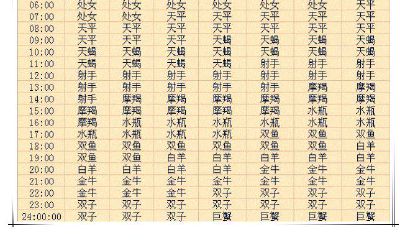 06:00 处女 处女 处女 处女 处女 处女 天平
07:00 处女 处女 天平 天平 天平 天平 天平
08:00 天平 天平 天平 天平 天平 天平 天平
09:00 天平 天平 天平 天蝎 天蝎 天蝎 天蝎
10:00 天蝎 天蝎 天蝎 天蝎 天蝎 天蝎 天蝎
11:00 天蝎 天蝎 天蝎 天蝎 射手 射手 射手
12:00 射手 射手 射手 射手 射手 射手 射手
13:00 射手 射手 射手 射手 射手 摩羯 摩羯
14:00 射手 摩羯 摩羯 摩羯 摩羯 摩羯 摩羯
15:00 摩羯 摩羯 摩羯 摩羯 摩羯 水瓶 水瓶
16:00 摩羯 水瓶 水瓶 水瓶 水瓶 水瓶 水瓶
17:00 水瓶 水瓶 水瓶 水瓶 双鱼 双鱼 双鱼
18:00 双鱼 双鱼 双鱼 双鱼 双鱼 双鱼 白羊
19:00 双鱼 双鱼 白羊 白羊 白羊 白羊 白羊
20:00 白羊 白羊 白羊 白羊 金牛 金牛 金牛
21:00 金牛 金牛 金牛 金牛 金牛 金牛 金牛
22:00 金牛 金牛 金牛 双子 双子 双子 双子
23:00 双子 双子 双子 双子 双子 双子 双子
24:00:00 双子 双子 双子 巨蟹 巨蟹 巨蟹 巨蟹